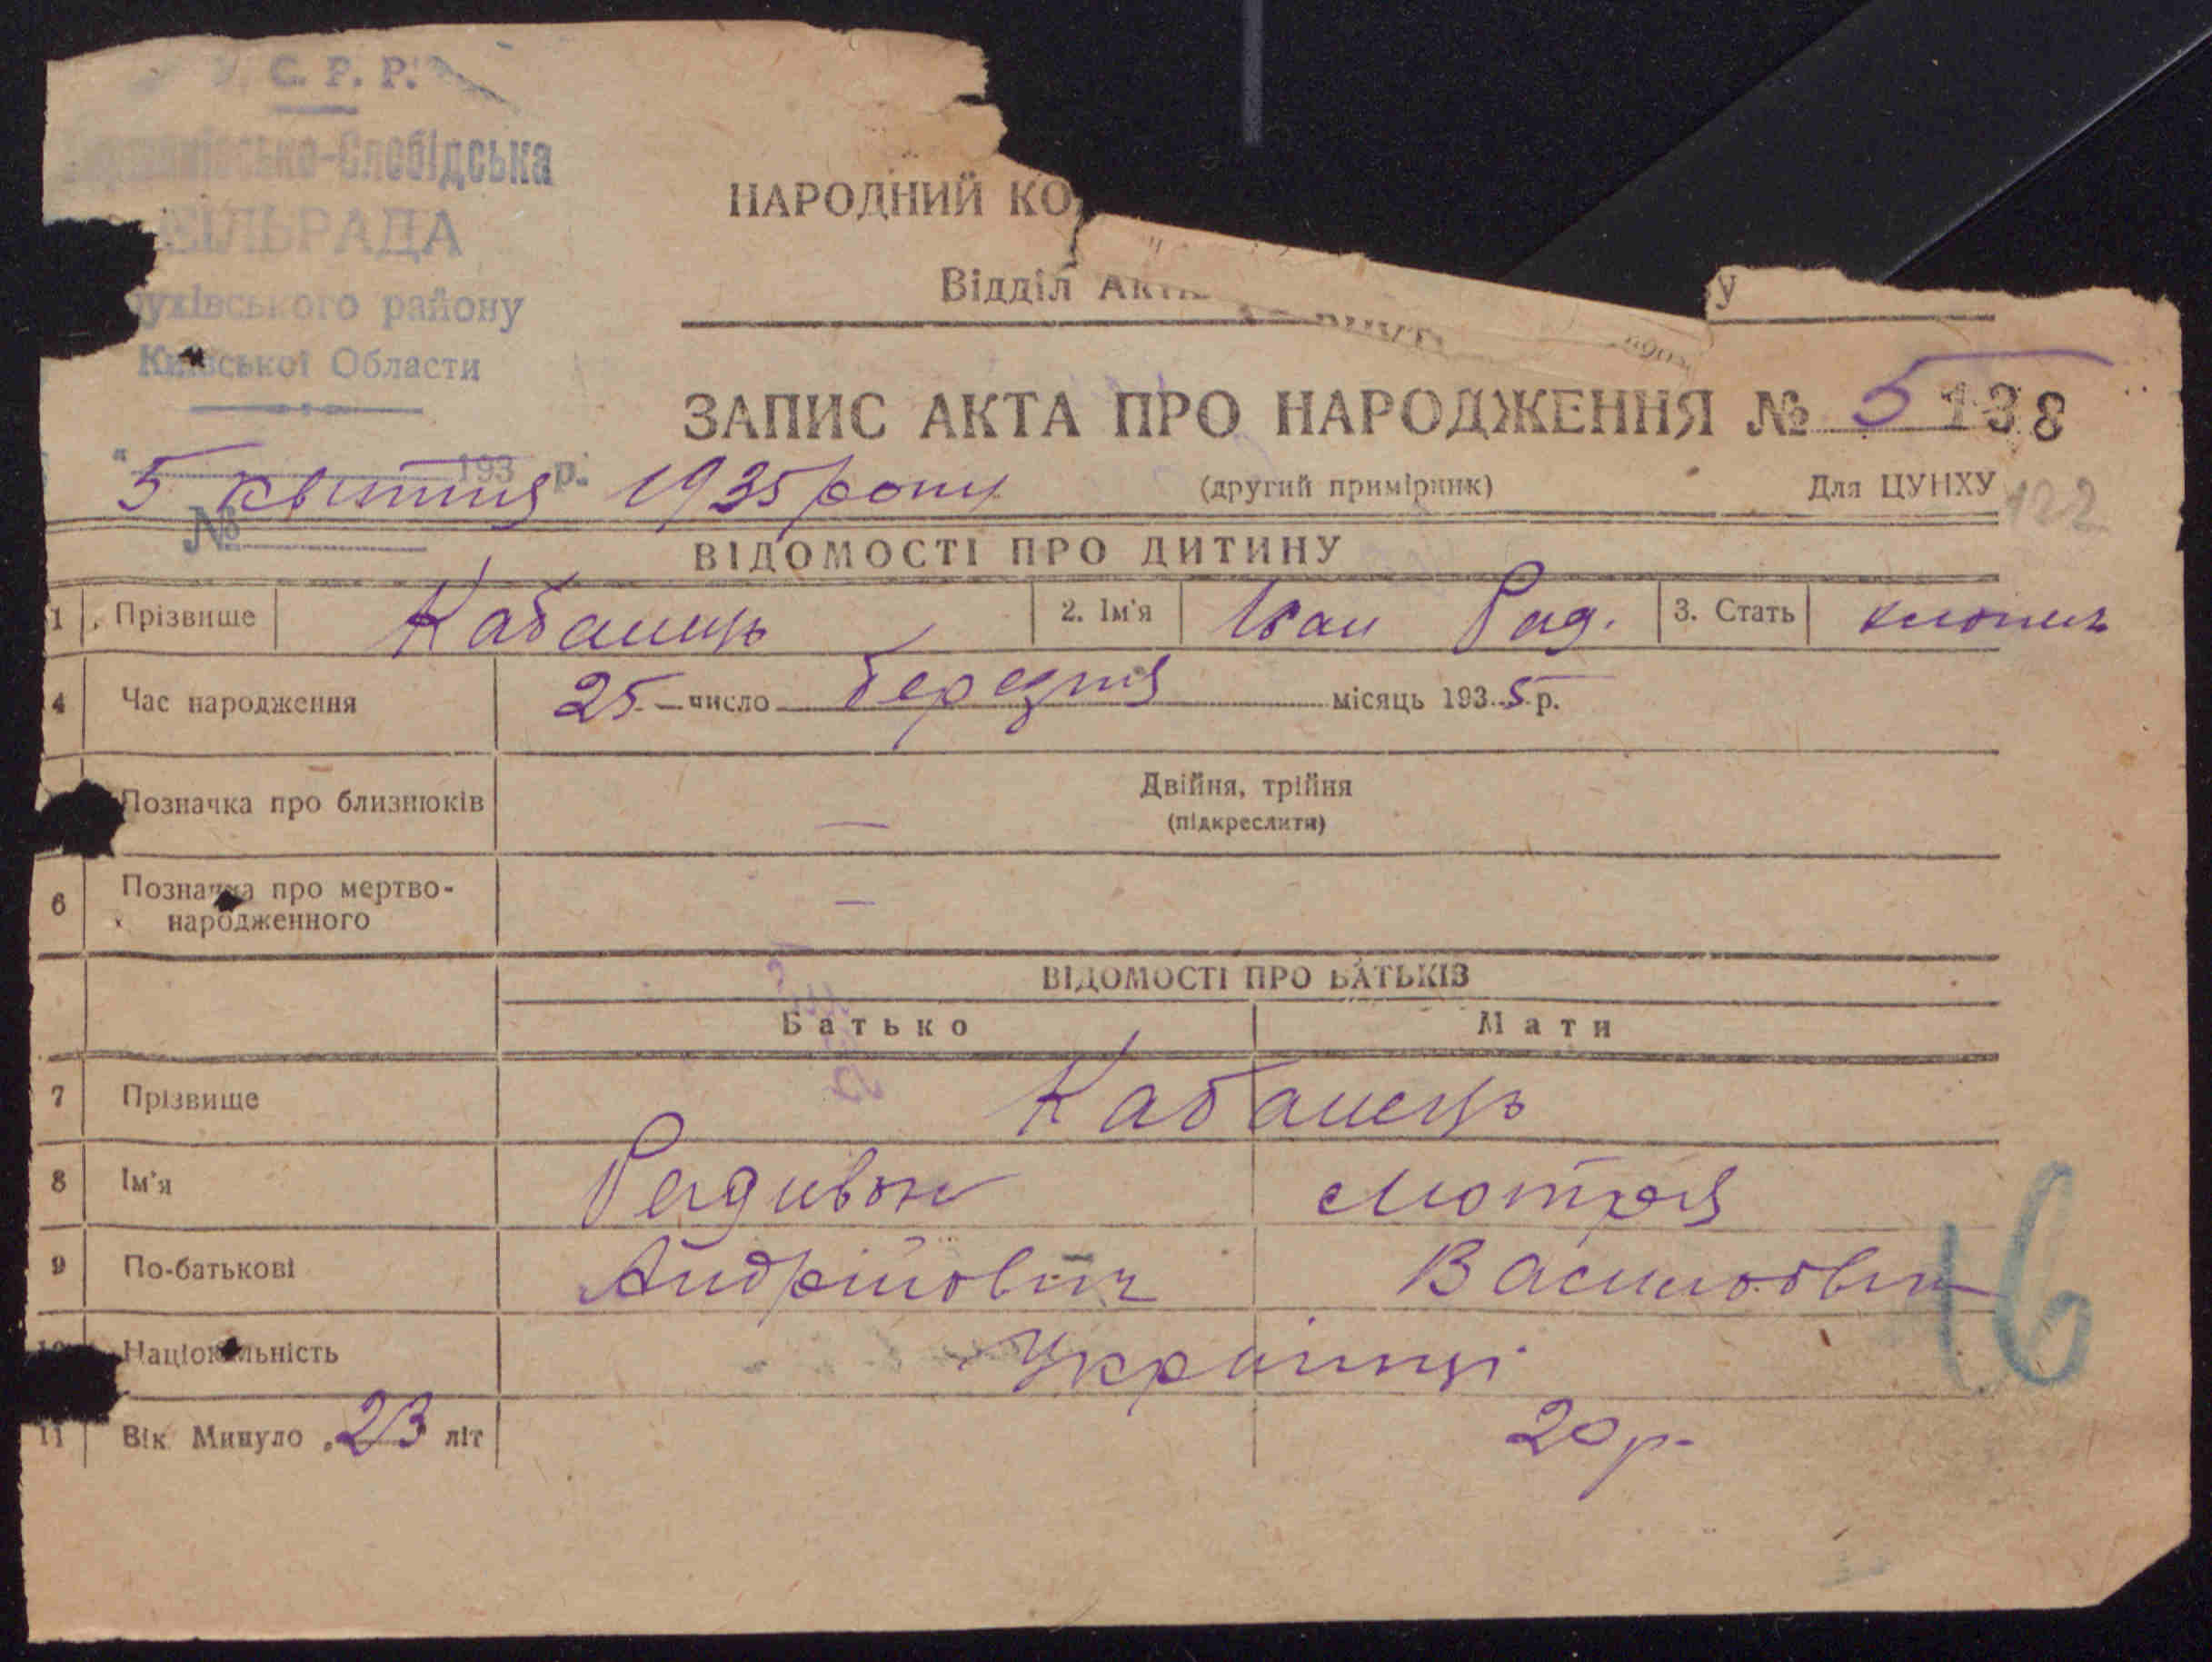 С. Р. Р.
Слобідська
СІЛЬРАДА
району
Київської Області
НАРОДНИЙ КО
Відділ Акт
У
ЗАПИС АКТА ПРО НАРОДЖЕННЯ № 5 138
" 193 р.
5 квітня 1935 року
(другий примірник) Для ЦУНХУ
122
№
ВІДОМОСТІ ПРО ДИТИНУ
1 Прізвище Кабанець 2. Ім'я Іван Рад. 3. Стать хлопець
4 Час народження 25 число березня місяць 1935 р.
Позначка про близнюків — Двійня, трійня
(підкреслити)
6 Позначка про мертво-
народженного —
ВІДОМОСТІ ПРО БАТЬКІВ
Батько Мати
7 Прізвище Кабанець
8 Ім'я Радивон Мотря
9 По-батькові Андрійович Василовна
10 Національність Українці
16
11 Вік Минуло 23 літ 20 р.